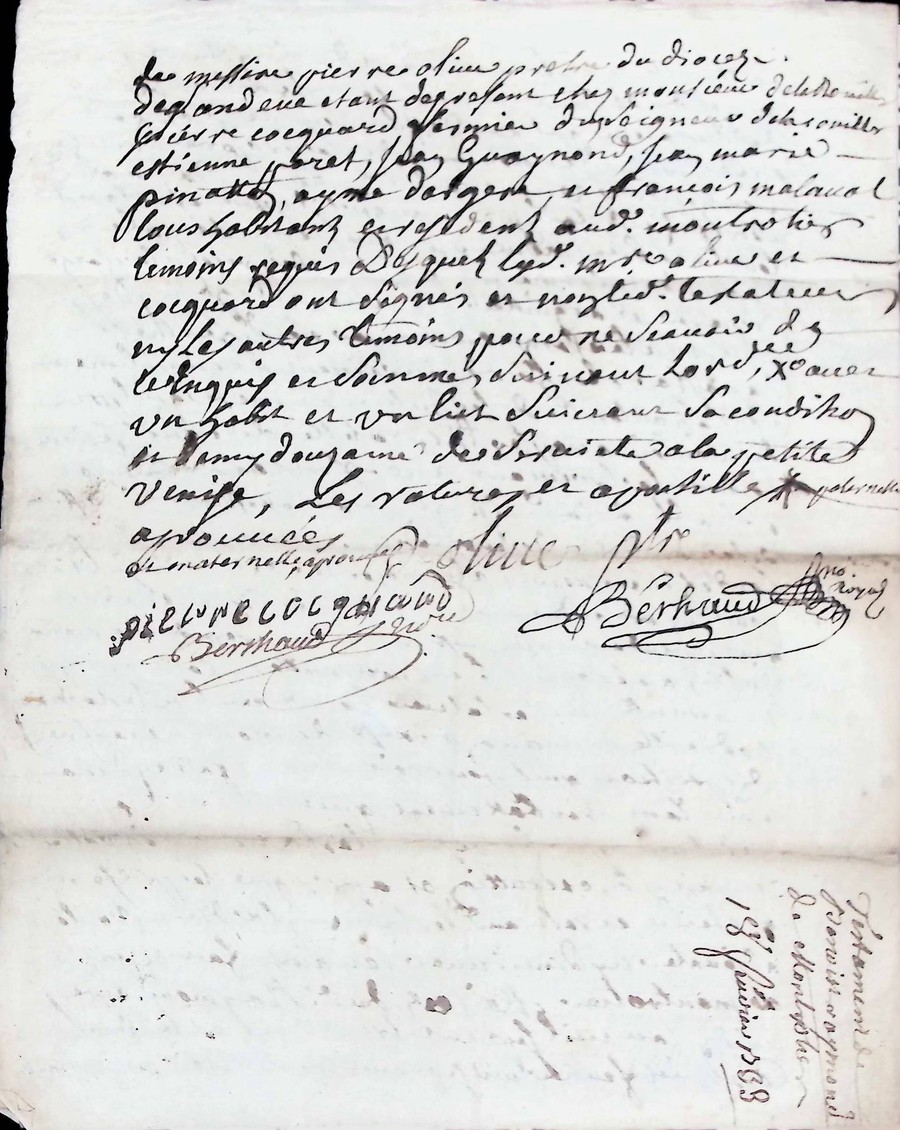 de messire pierre oliue prestre du diocez
de gandeue estant de present chez monsieur
pierre cocquard fermier du seigneur
estienne poret, Jean Guaynond, Jean marie
pinatton, ayme dargere, et françois malaual
tous habitant et resident aud. montrotier
temoins requis desquels led. mre oliue et
cocquard ont signés et non led. testateur
ny les autres temoins pour ne scauoir de
ce enquis et sommes suiuant lord. x avec
un habit et un lict suiuant sa condition
et demy douzaine de seruiete a la petite
venise, Les ratures et apostille paternelle
aprouuées
et maternelle aprouué Oliue ptre
pierre cocquard
Berthaud
Berthaud no royal
Testament de
raymond
de Montrotier
18 feurier